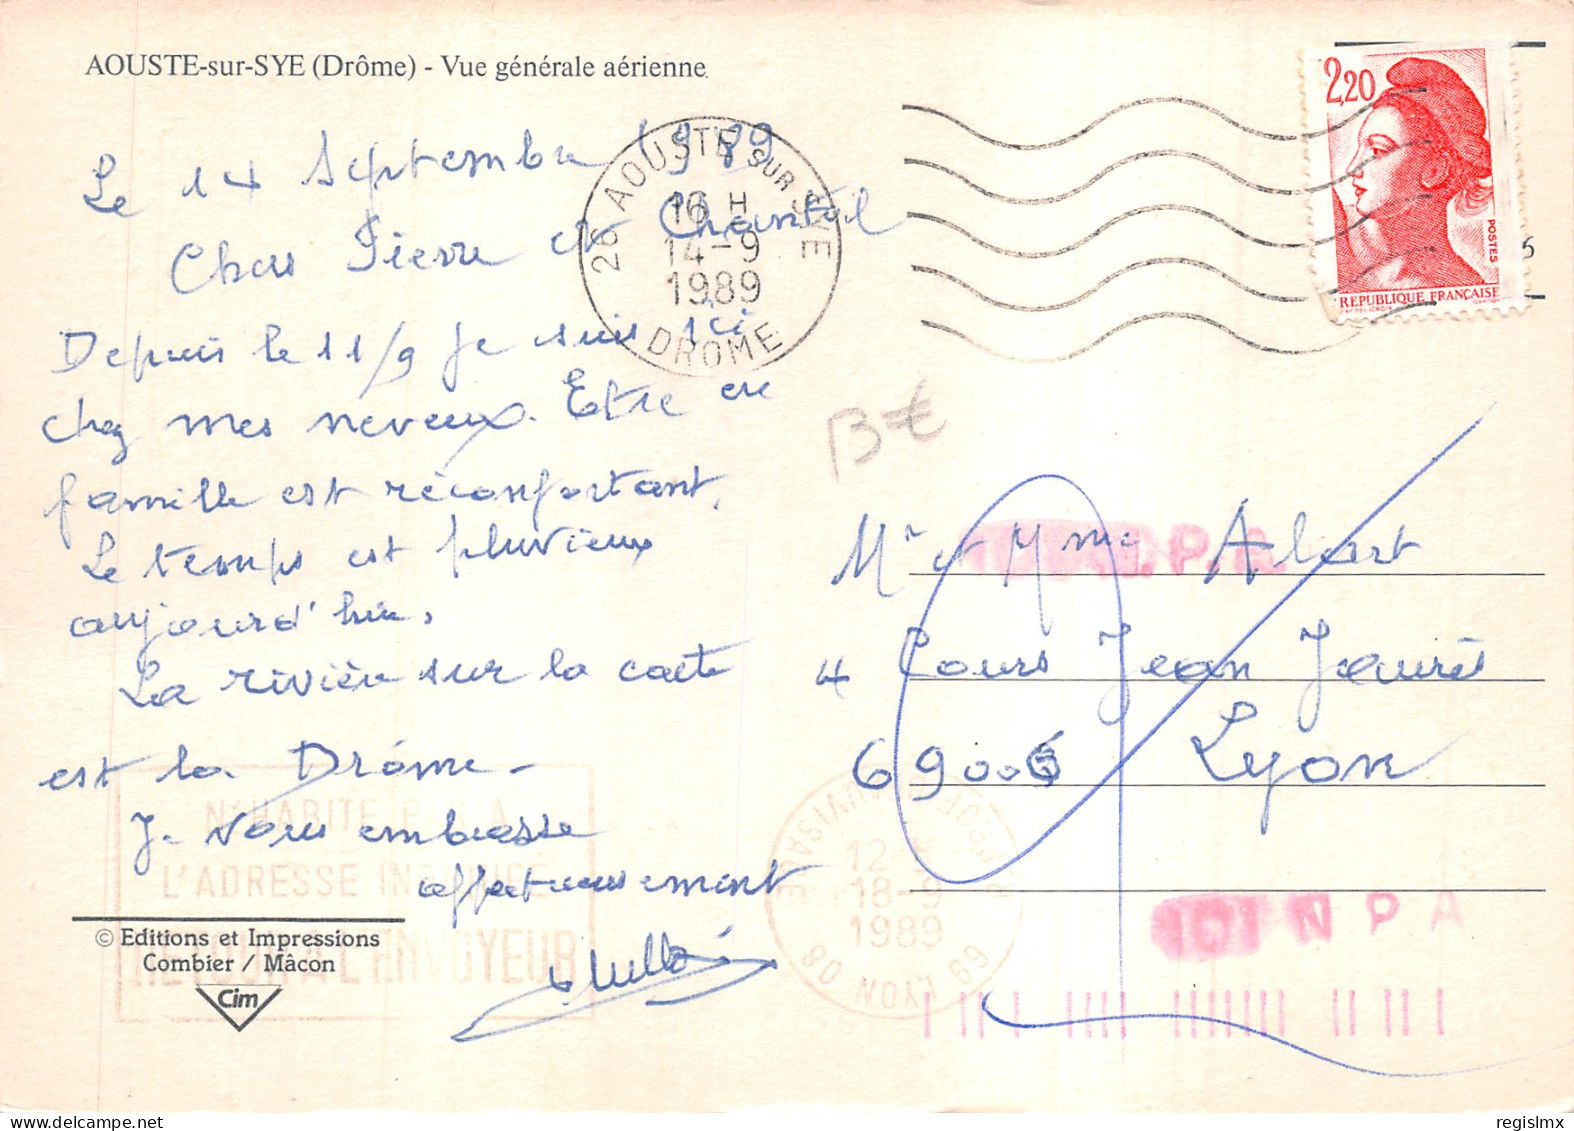 AOUSTE-sur-SYE (Drôme) - Vue générale aérienne
Le 14 Septembre 1989
Chers Pierre et Chantal
Depuis le 11/9 je suis ici
chez mes neveux. Etre en
famille est réconfortant.
Le temps est pluvieux
aujourd'hui.
La rivière sur la carte
est la Drôme -
Je vous embrasse
affectueusement
© Editions et Impressions
Combier / Mâcon
Cim
26 AOUSTE SUR SYE
16 H
14-9
1989
DROME
2,20
POSTES
REPUBLIQUE FRANÇAISE
Mr et Mme
4 Cours Jean Jaurès
69006 Lyon
N'HABITE P A
L'ADRESSE INDIQUEE
RETOUR A L'ENVOYEUR
12
18-9
1989
69 LYON 08
N P A
regislmx